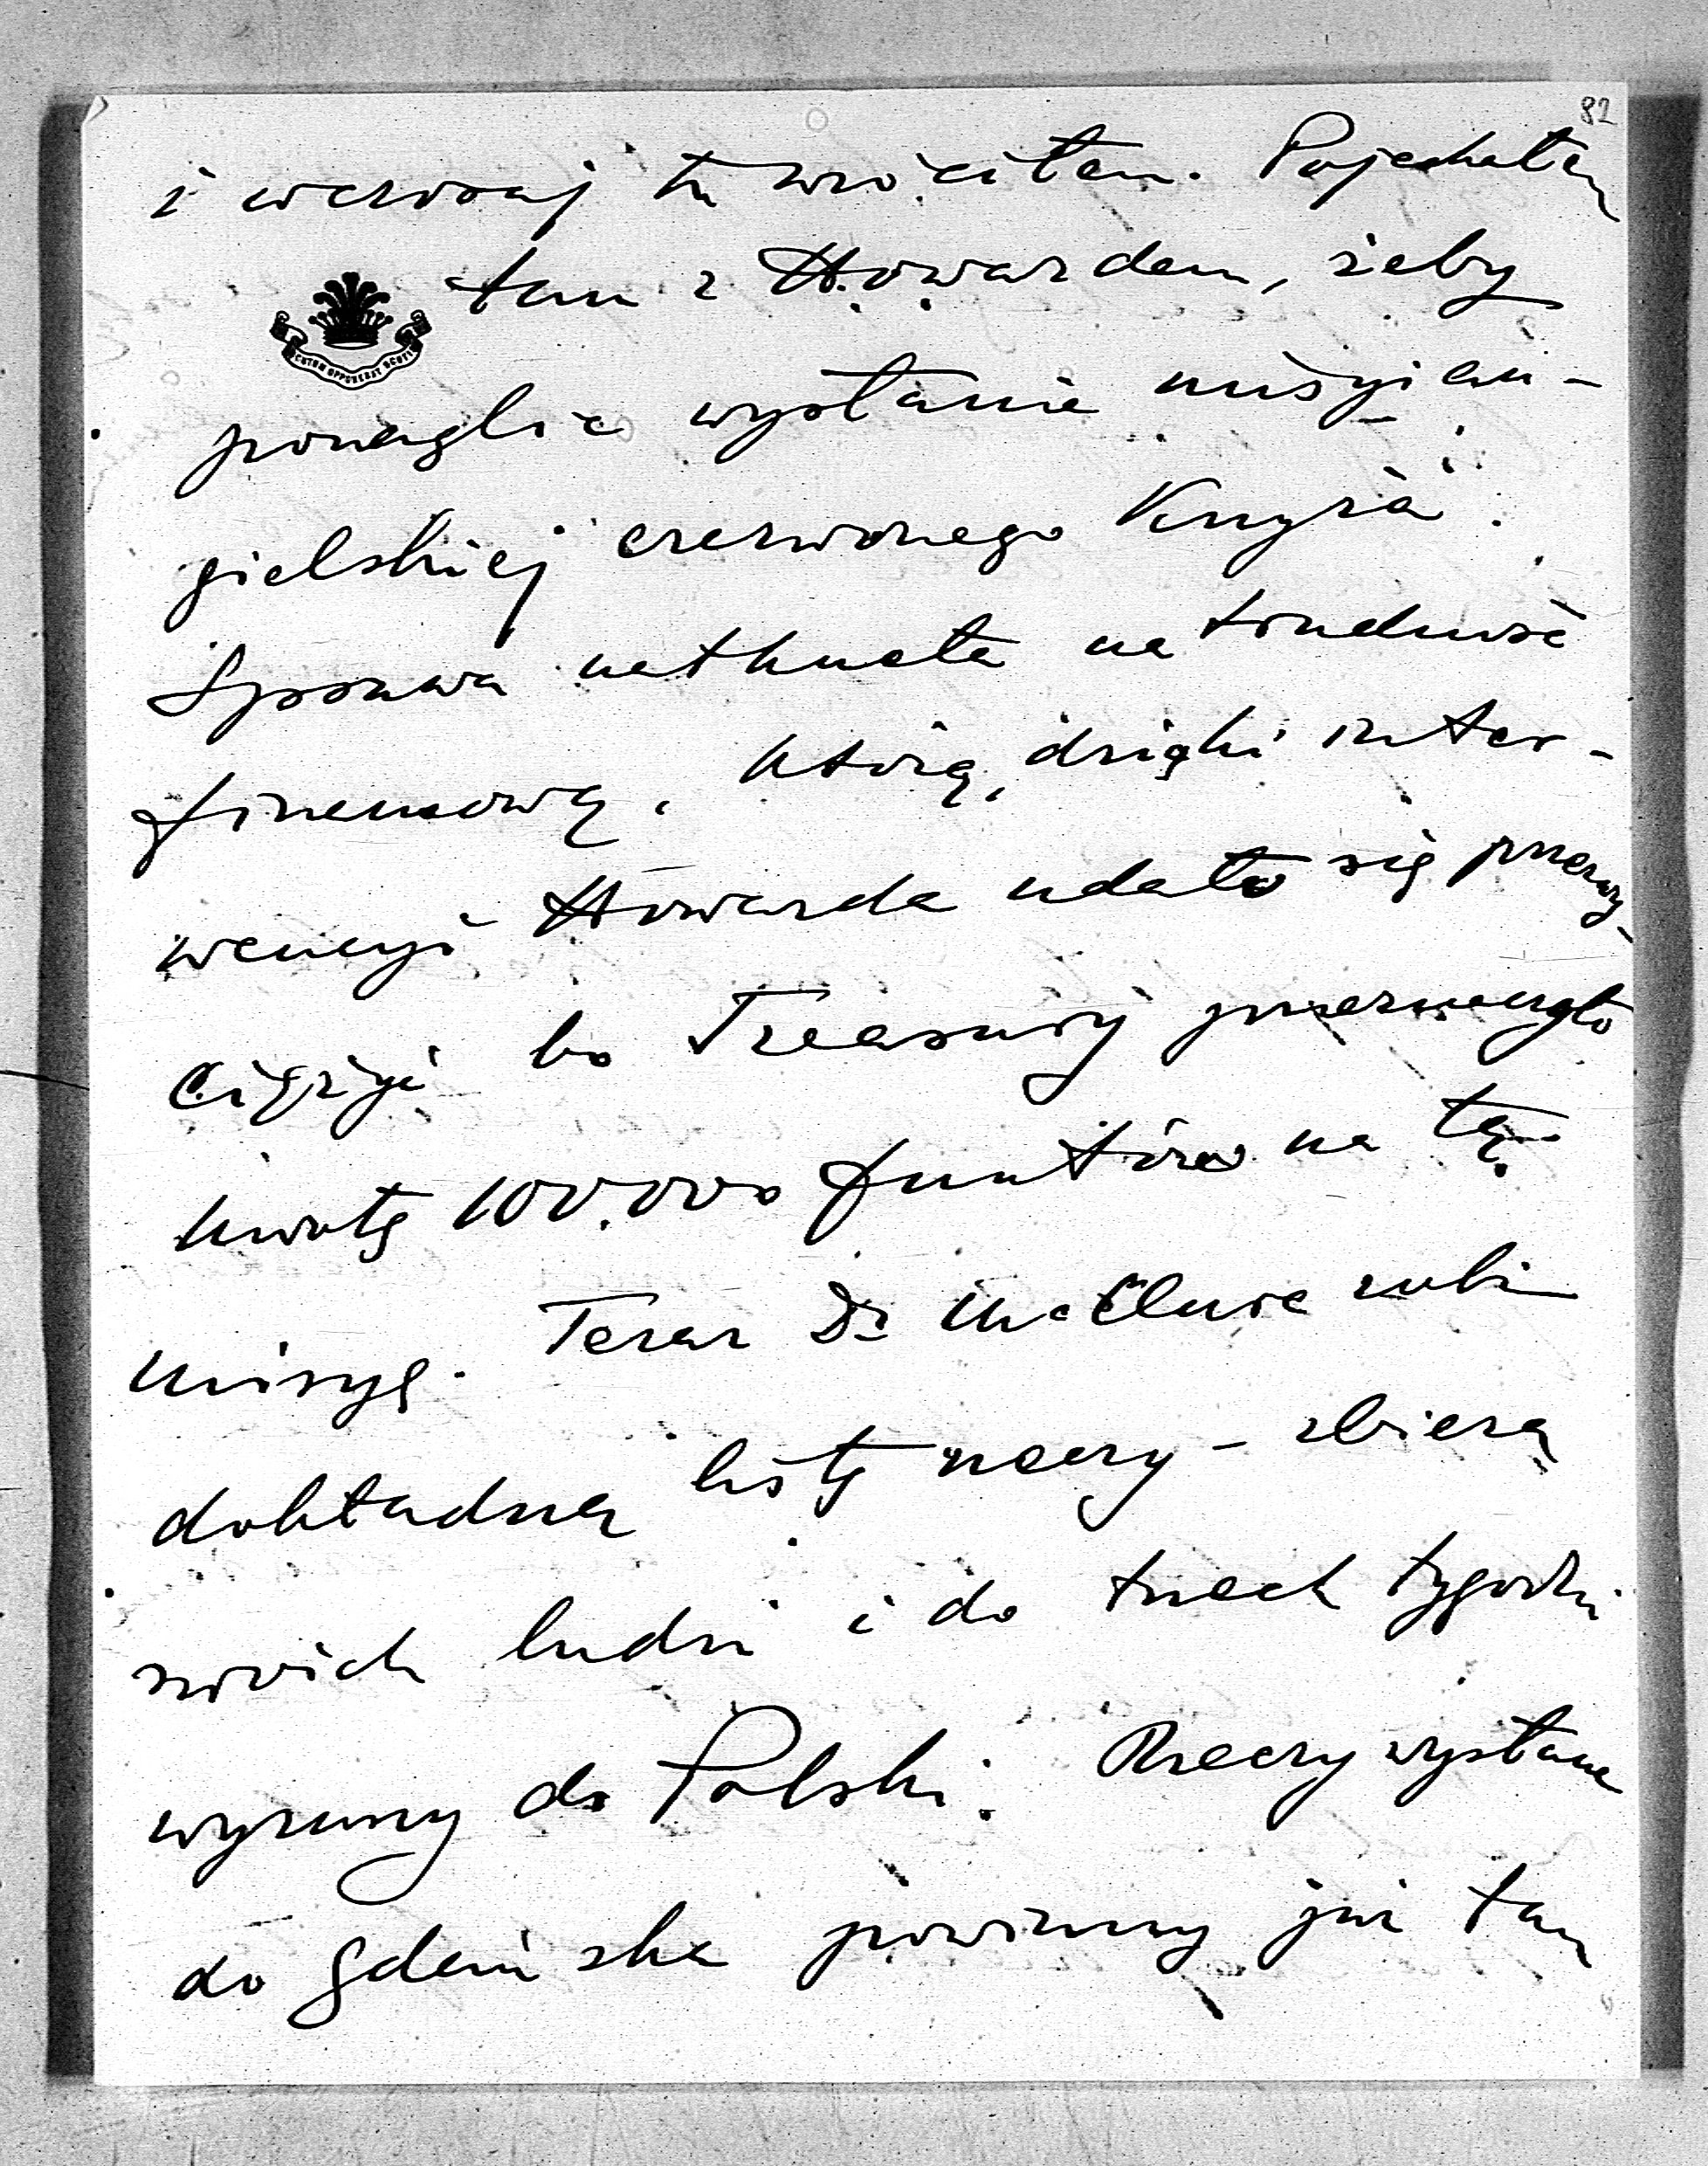 82
i wczoraj tu wróciłem. Pojechałem
tam z Howardem, żeby
ponaglić wysłanie misyi an-
gielskiej czerwonego Krzyża.
Sprawa natknęła na trudność
finansową, którą, dzięki inter-
wencyi Howarda udało się przezwy-
ciężyć bo Treasury przeznaczyło
kwotę 100.000 funtów na tę
misyę. Teraz Dr McClure robi
dokładną listę rzeczy – zbierą
swoich ludzi i do trzech tygodni
wyruszy do Polski. Rzeczy wysłane
do Gdańska powinny już tam